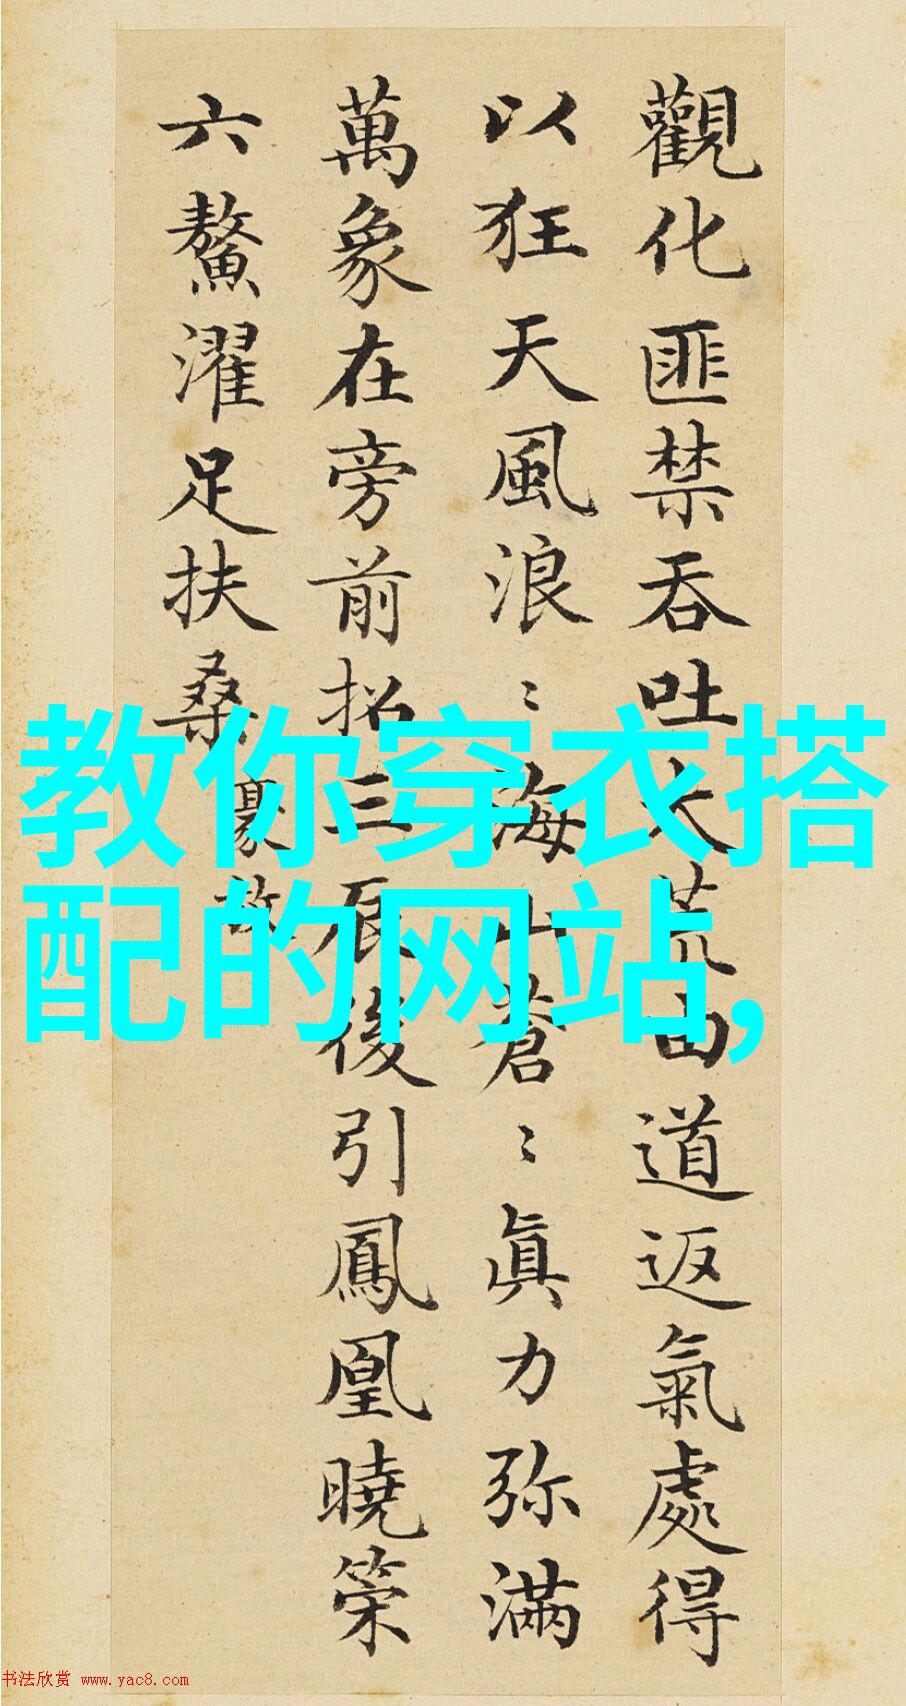 觀化匪禁吞吐大荒由道返氣處得
以狂天風浪〻海山蒼〻眞力弥滿
萬象在旁前招三辰後引鳳凰曉策
六鰲濯足扶桑
豪放
教你穿衣搭
配的网站,
书法欣赏 www.yac8.com